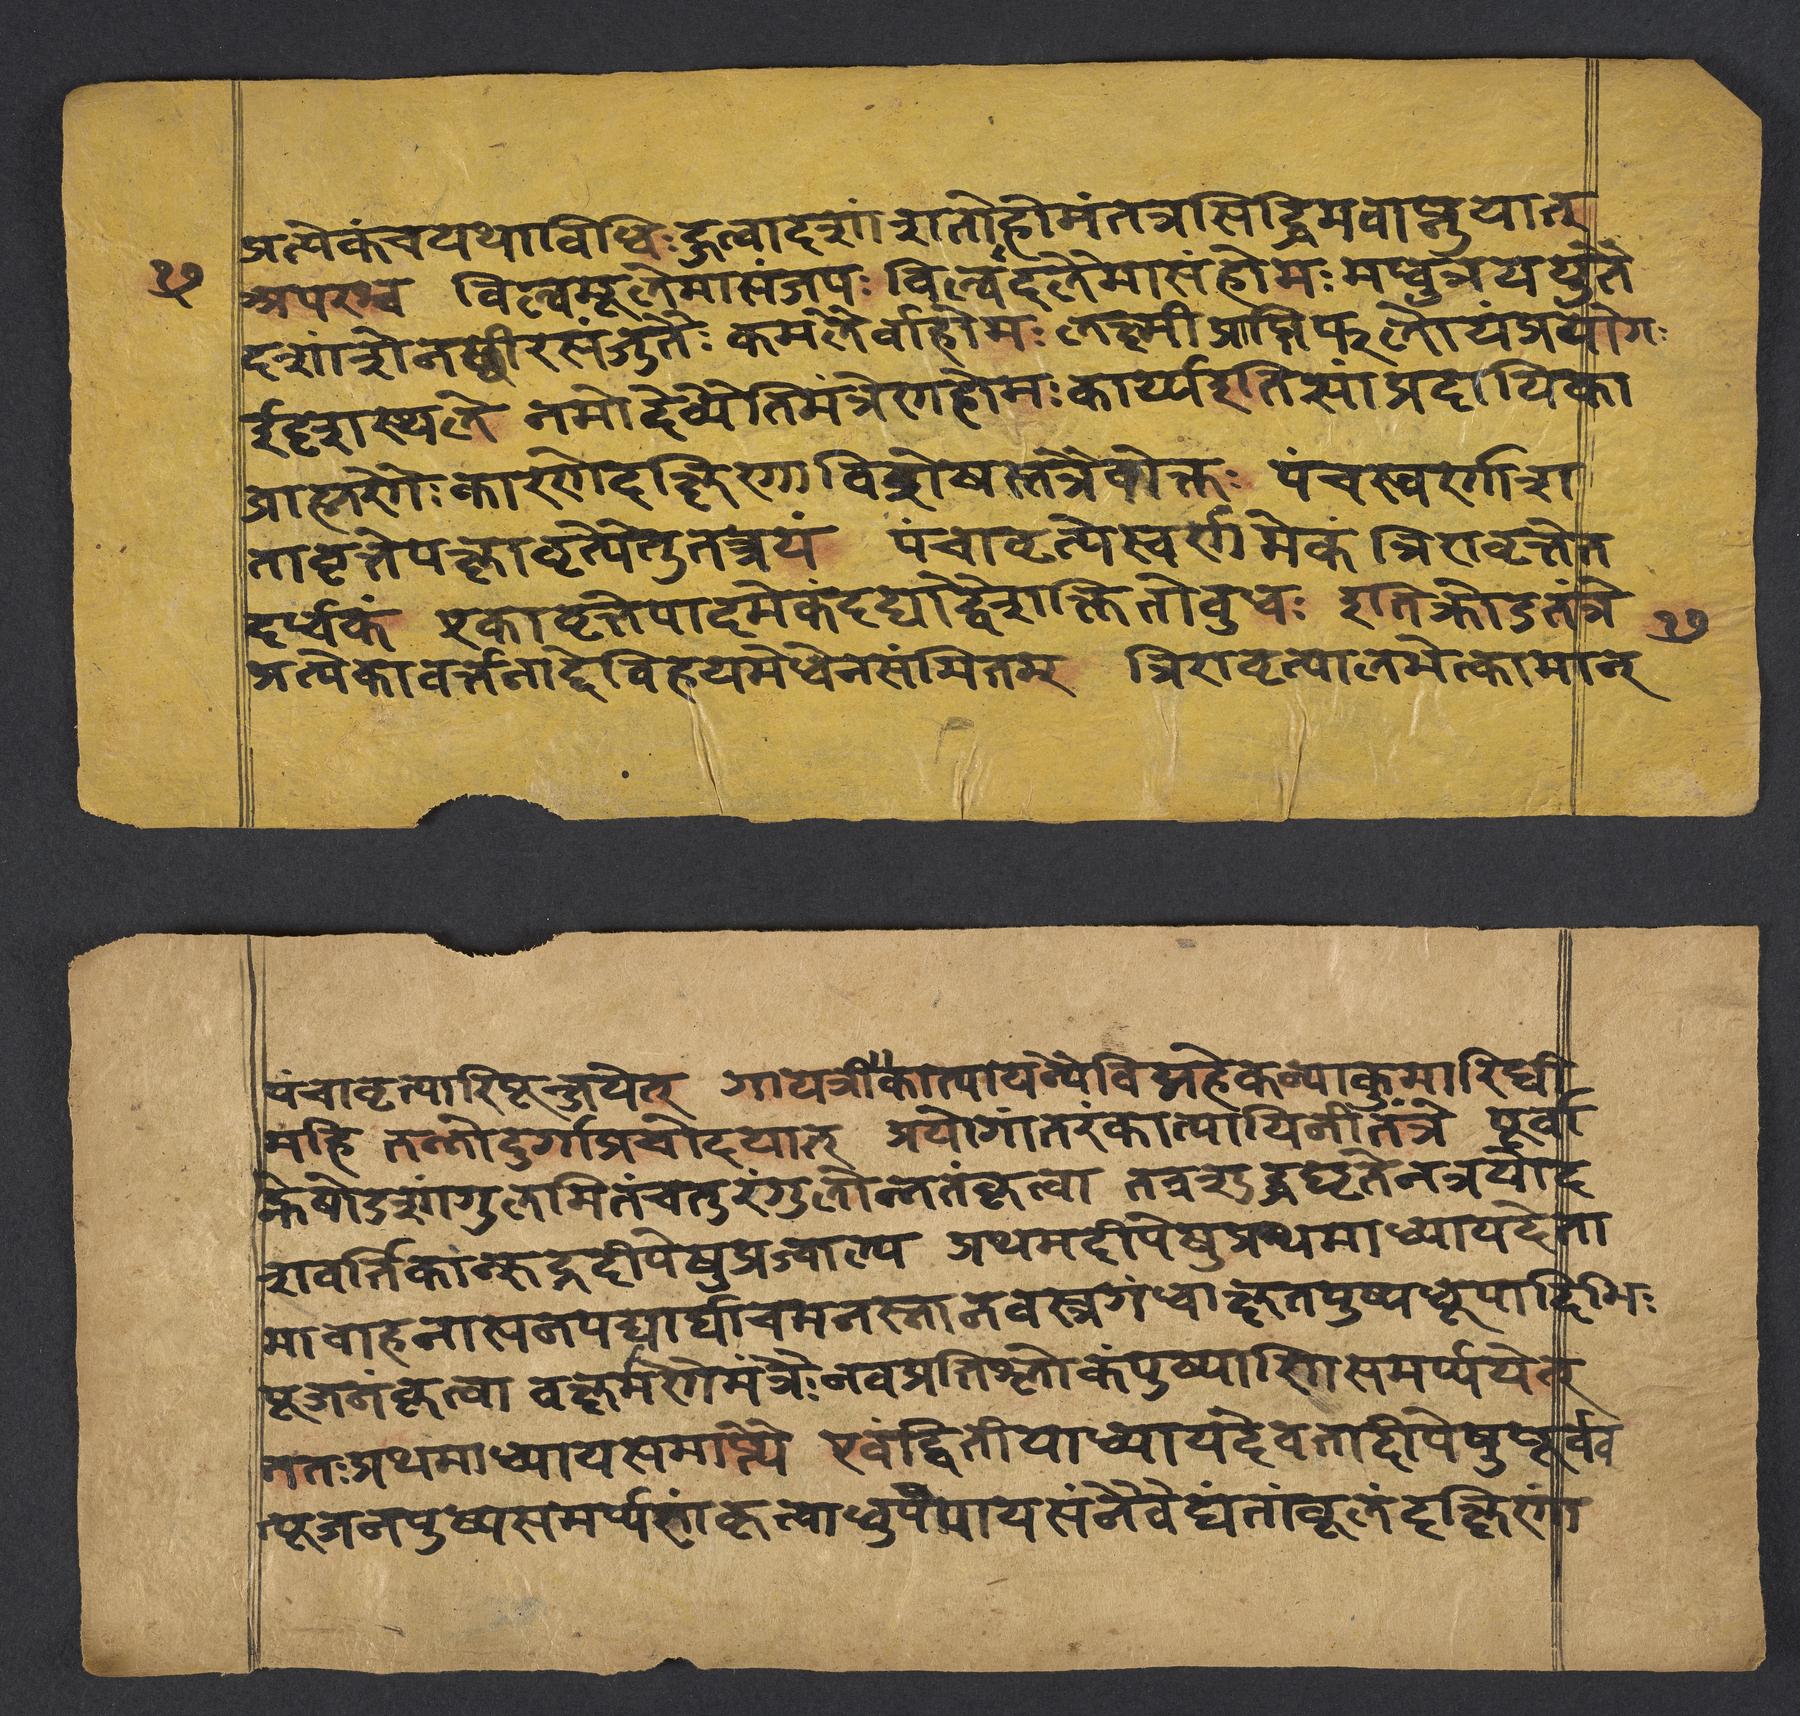 प्रत्येकंचयथाविधिःहुत्वादशांशतोहोमंतत्रसिद्धिमवाप्नुयात्
१७
अपरश्च विल्वमूलेमासंजपः विल्वंदलेमासंहोमः मध्वुत्रययुते
दशांशेनक्षीरसंजुतैः कमलैर्वाहोमः लक्ष्मीप्राप्तिफलोयंप्रयोगः
ईदृशस्थले नमोदेव्यैतिमंत्रेणहोमः कार्य्यइतिसांप्रदायिका
विशेषस्तत्रैवोक्तः पंचस्वर्णाशा
पंचावृत्येस्वर्णमेकं त्रिरावृत्तेत
दर्प्यकं एकावृत्तेपादमेकंदद्याद्वेशक्तितोवुधः इतिक्रोडतंत्रे
१७
प्रत्येकावर्त्तनाद्देविहयमेधेनसंमितम् त्रिरावृत्यालमेत्कामान्
पंचावृत्यारिपून्जयेत् गायत्रीकात्यायन्यैविद्महेकन्याकुमारिधी
महि तन्नोदुर्गाप्रचोदयात् प्रयोगांतरंकात्यायिनीतंत्रे पूर्वा
ह्नेषोडशांगुलमितंचतुरंगुलोन्नतंकृत्वा तत्रशुद्धघृतेनत्रयोद
शवर्त्तिकान्रुद्रदीपेषुप्रज्वाल्य प्रथमदीपेषुप्रथमाध्यायदेता
मावाहनासनपद्यार्घाचमनस्नानवस्त्रगंधाक्षतपुष्पधूपादिभिः
पूजनंकृत्वा वक्ष्यमाणैमंत्रैःनवप्रतिश्लोकंपुष्पाणिसमर्प्पयेत्
ततःप्रथमाध्यायसमाप्त्यै एवंद्वितीयाध्यायंदैवतादीपेषुपूर्वव
त्पूजनपुष्पसमर्प्पणंकृत्वाधुपंपायसंनैवेद्यंतांवूलंदक्षिणां